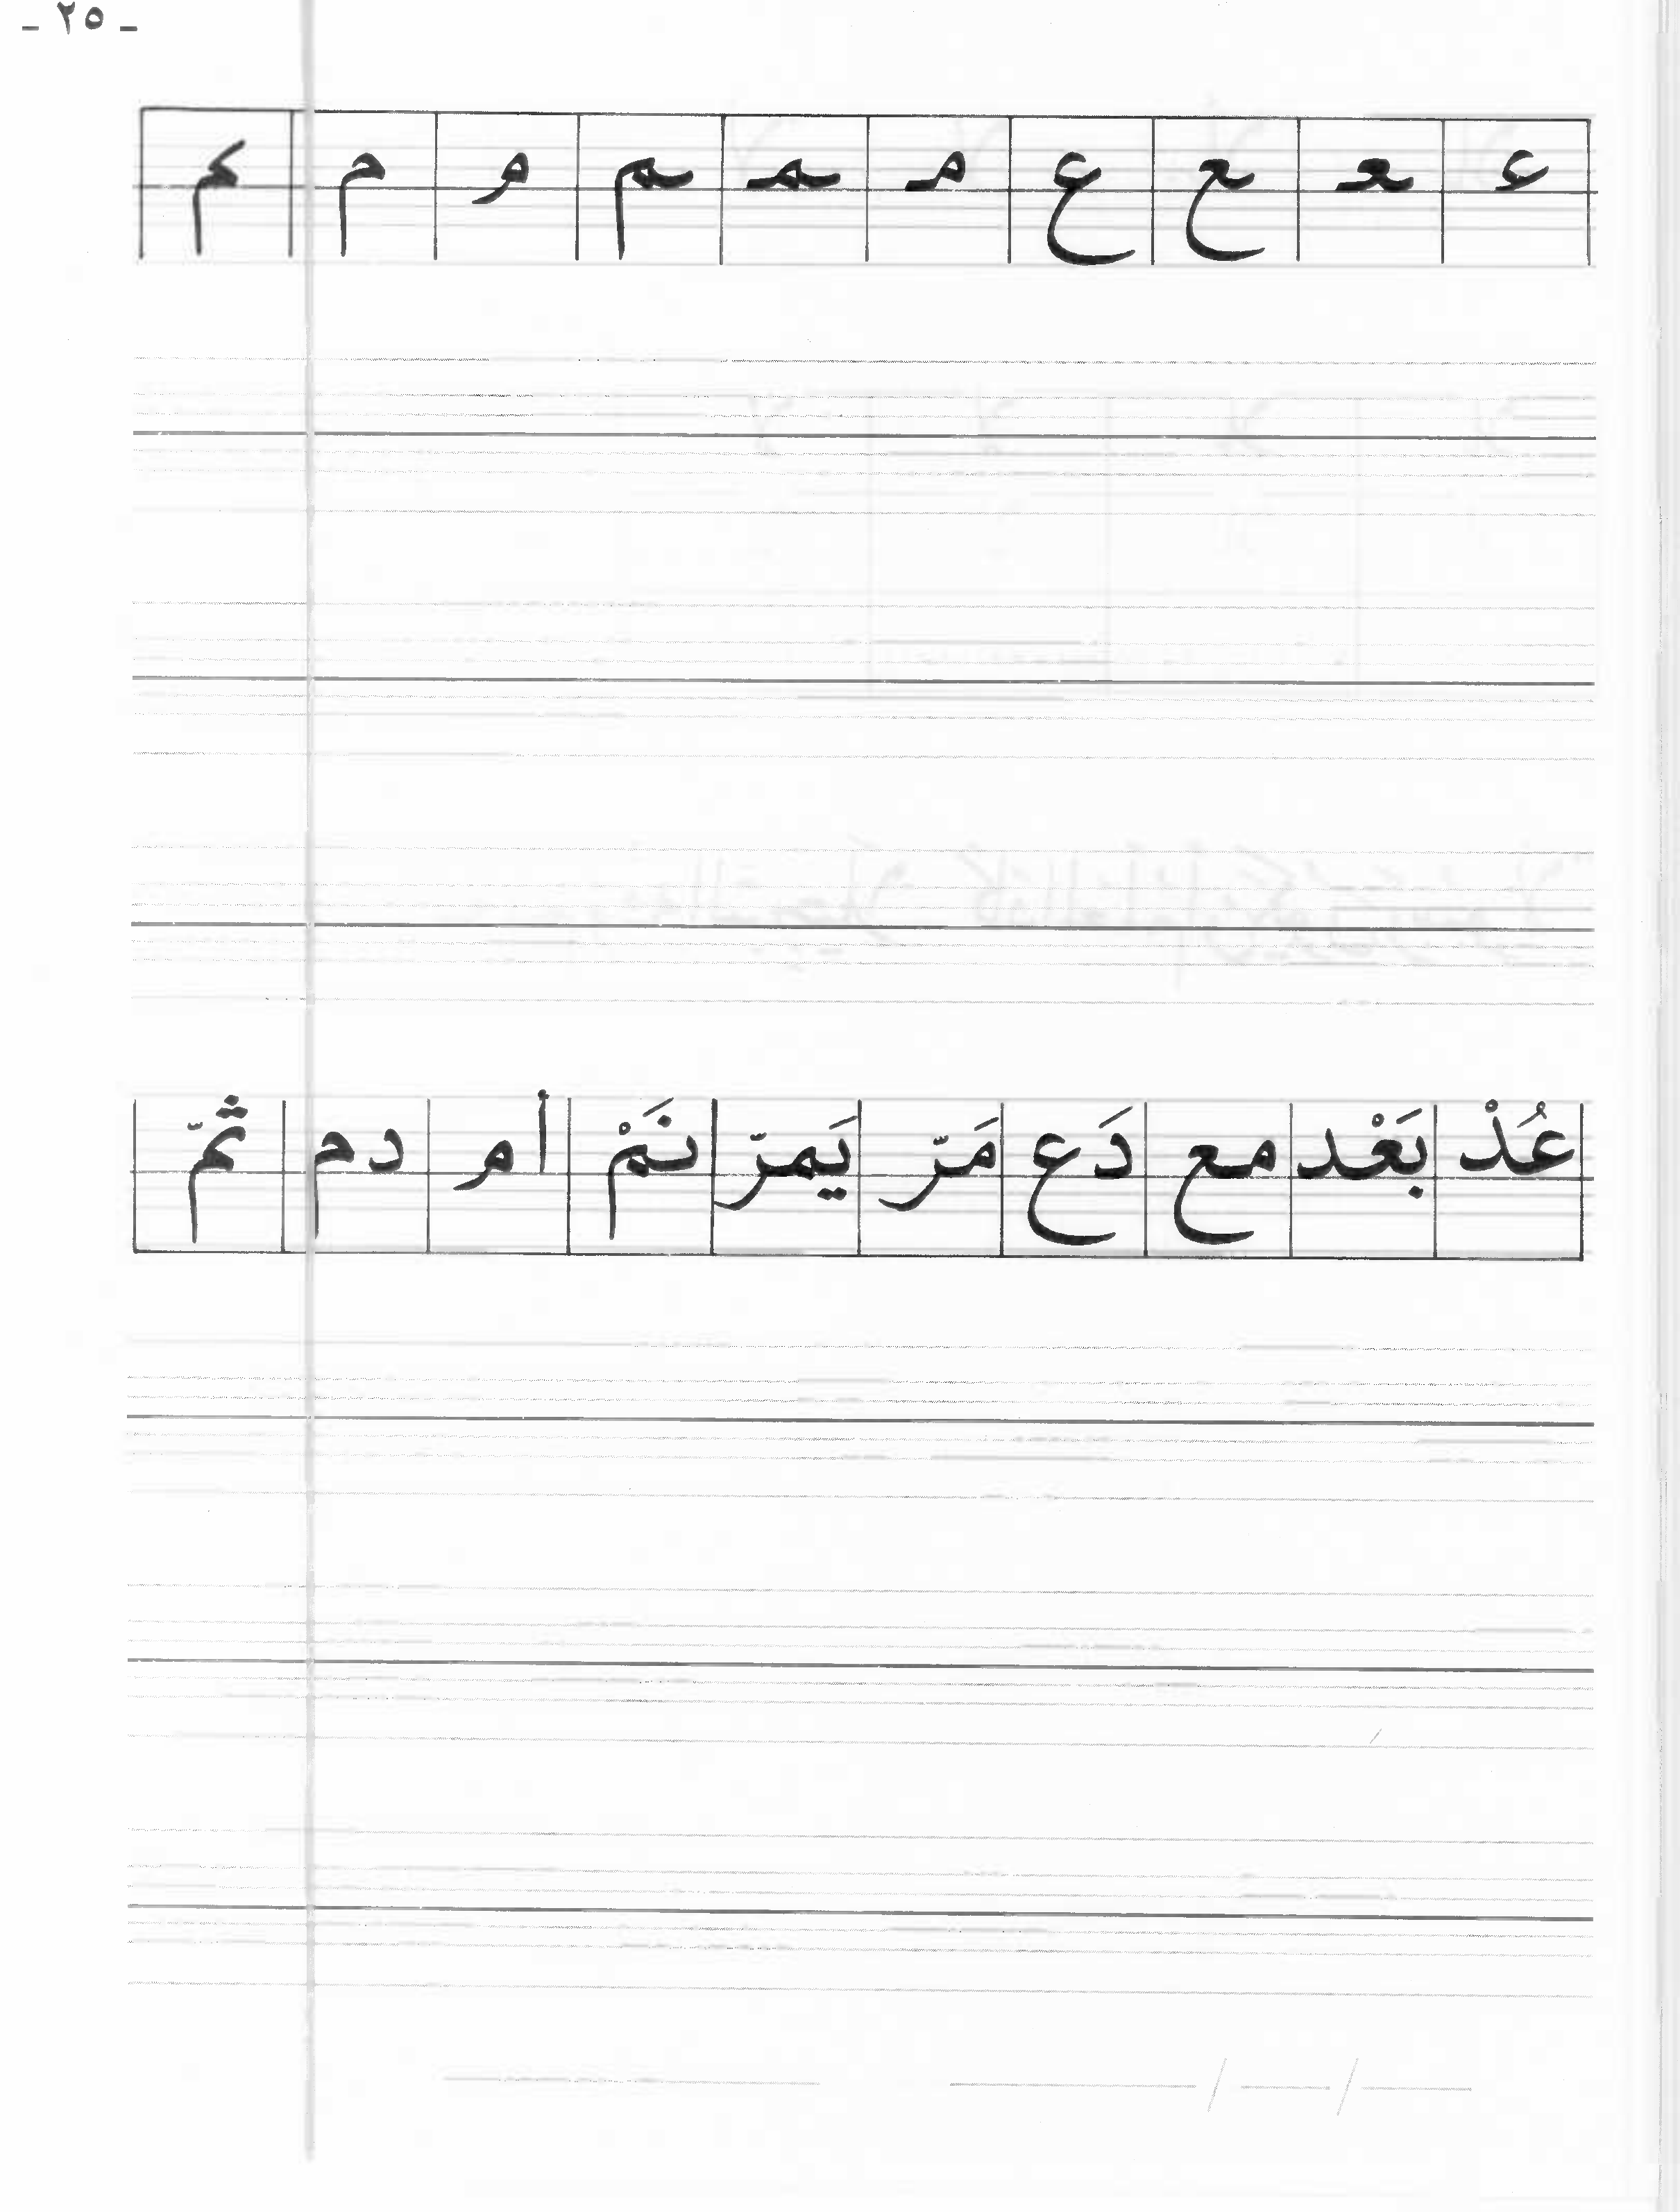 - ٢٥ -
عـ ـعـ ـع ع مـ ـمـ ـم م م ـم
عُدْ بَعْد مع دَع مَرّ يَمرّ نَمْ أم دم ثمّ